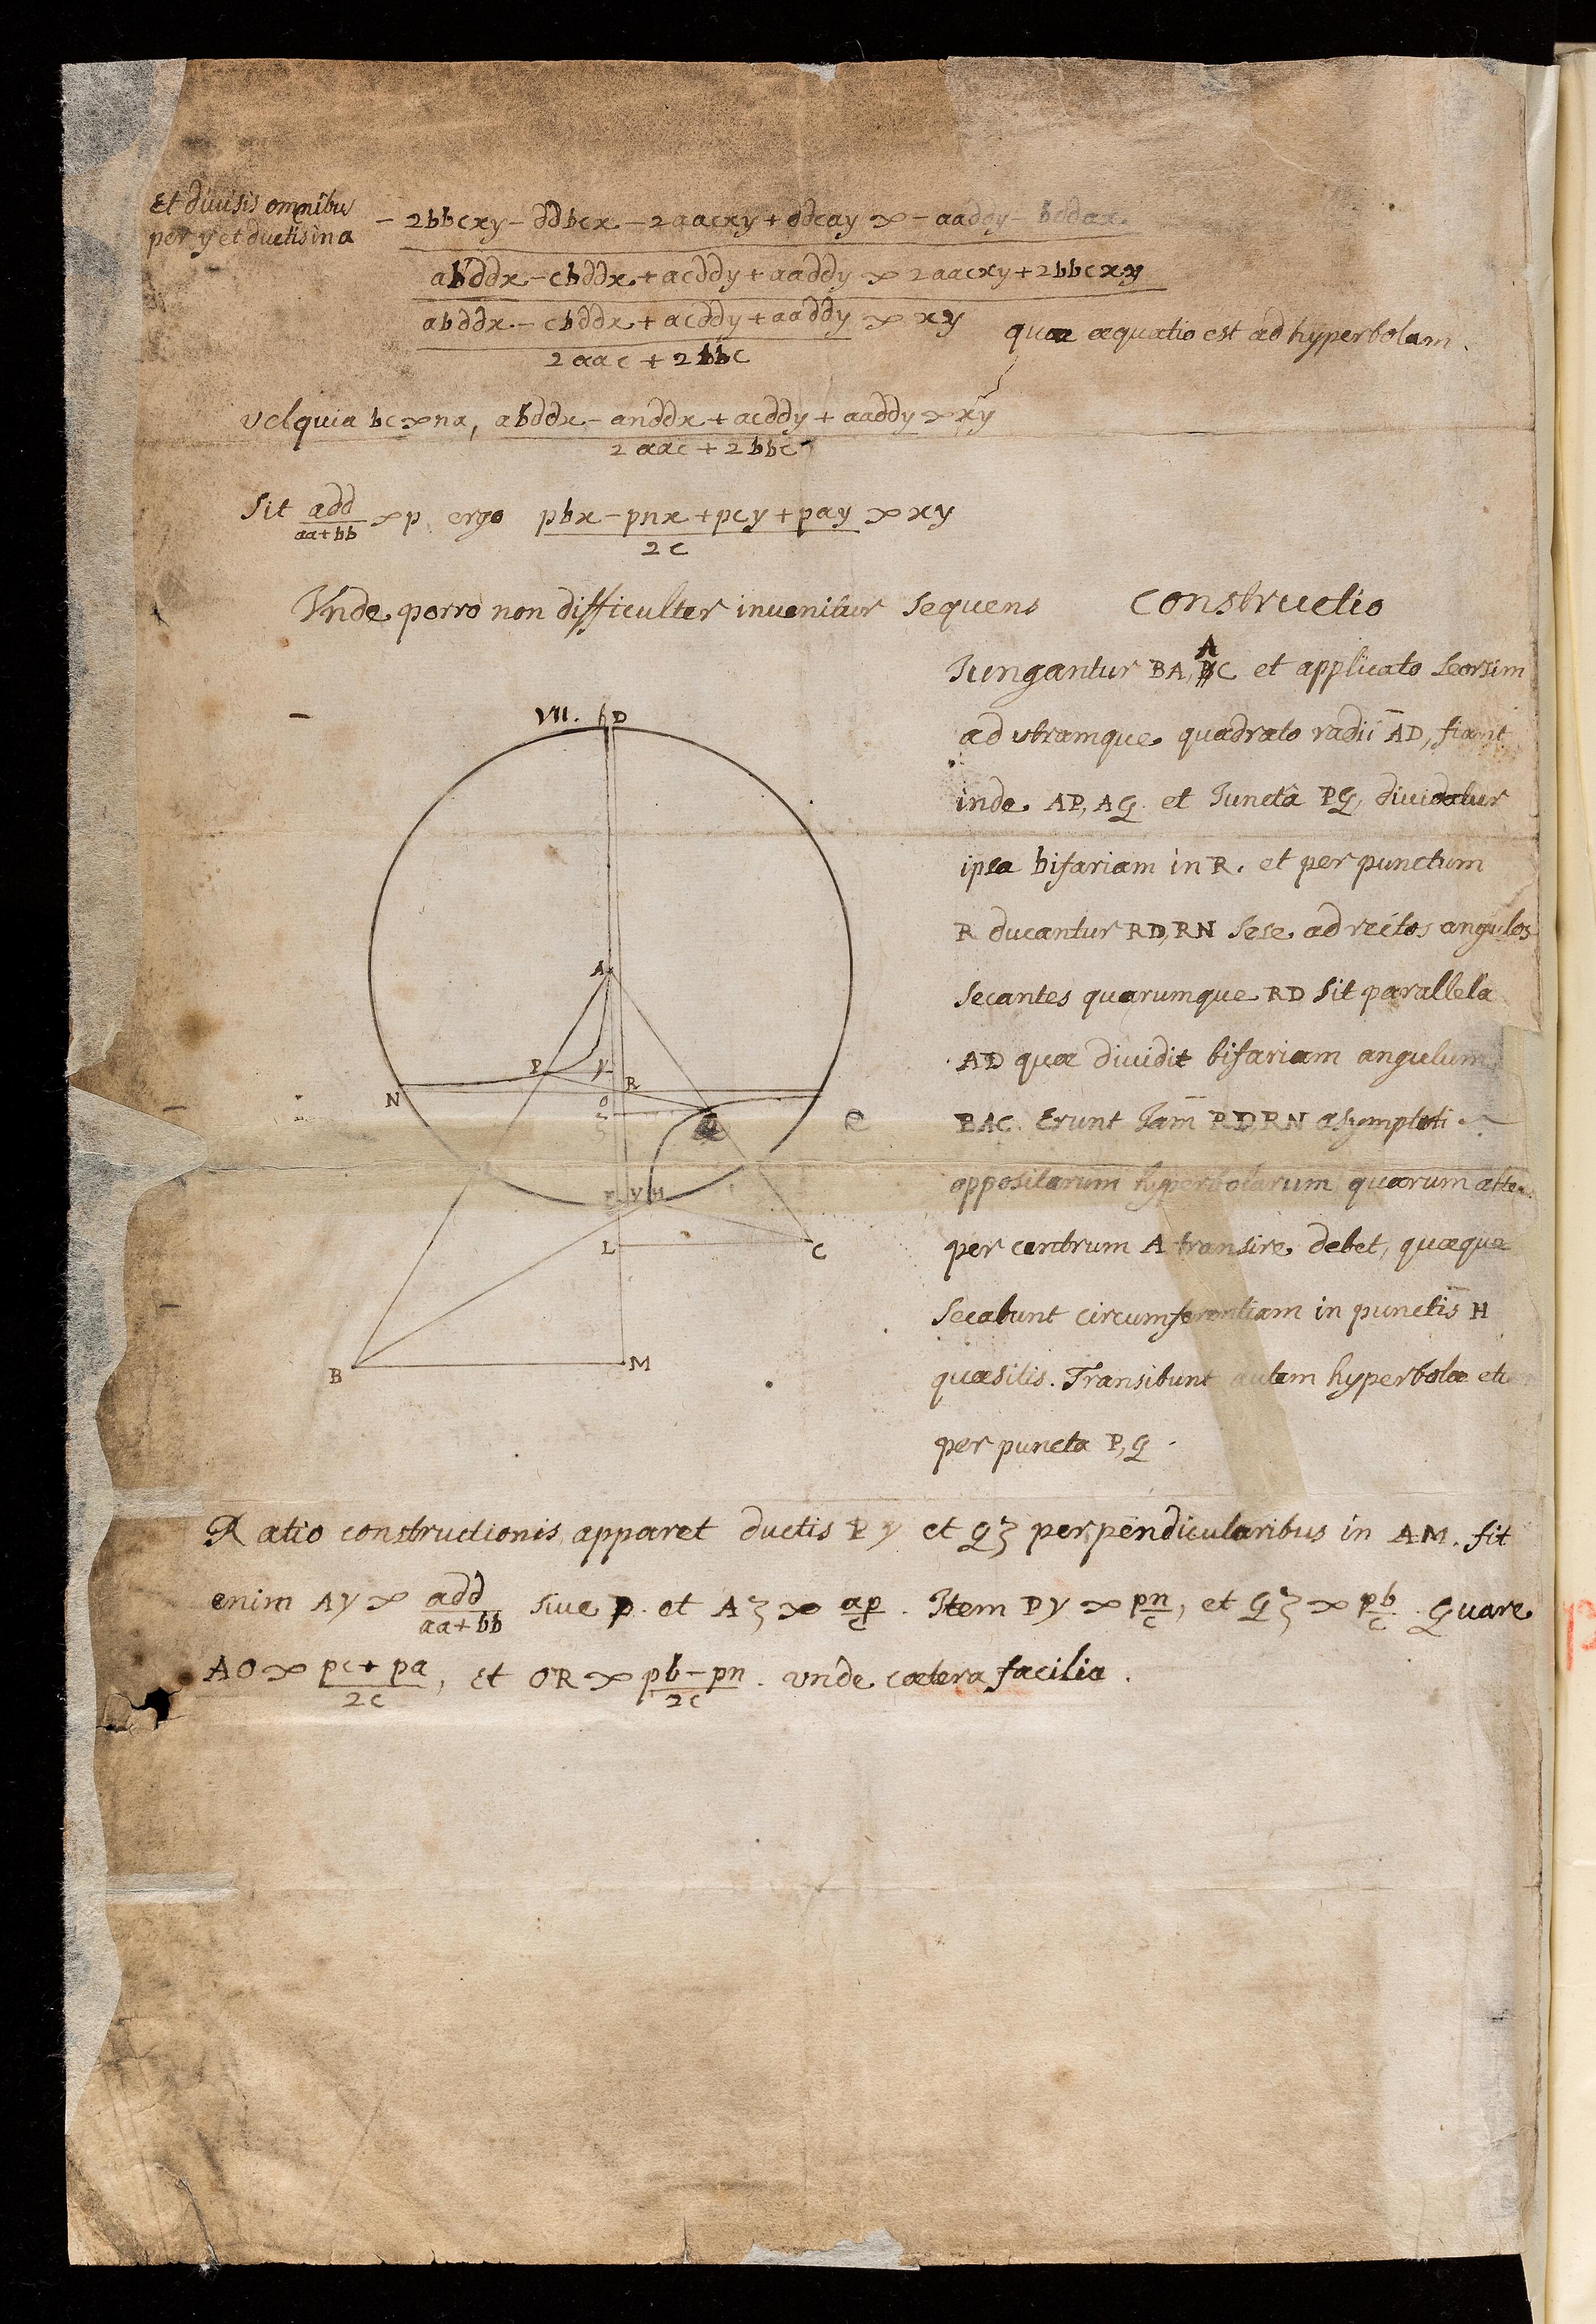 Et divisis omnibus
per y et ductis in a
- 2bbcxy - ddbcx - 2aacxy + ddcay ∝ - aaddy - bddax
abddx - cbddx + acddy + aaddy ∝ 2aacxy + 2bbcxy
abddx - cbddx + acddy + aaddy ∝ xy
2aac + 2bbc
quæ æquatio est ad hyperbolam.
vel quia bc ∝ na, abddx - anddx + acddy + aaddy ∝ xy
2aac + 2bbc
Sit add ∝ p ergo pbx - pnx + pcy + pay ∝ xy
aa+bb 2c
Vnde porro non difficulter invenitur sequens Constructio
A
Jungantur BA, C et applicato seorsim
VII. D
ad utramque quadrato radii AD, fiant
inde AP, AQ. et Junctâ PQ, dividatur
ipsa bifariam in R. et per punctum
R ducantur RD, RN sese ad rectos angulos
A
secantes quarumque RD sit parallela
AD quæ dividit bifariam angulum
P y
R
N O
BAC. Erunt Jam RD, RN asymptoti
ʒ
Q
oppositarum hyperbolarum quarum
V H
per centrum A transire debet, quæque
L C
secabunt circumferentiam in punctis H
B M
quæsitis. Transibunt autem hyperbolæ
per puncta P, Q.
Ratio constructionis apparet ductis Py et Qʒ perpendicularibus in AM. fit
enim Ay ∝ add sive p. et Aʒ ∝ ap. Item Py ∝ pn, et Qʒ ∝ pb. Quare
aa+bb c c c
AO ∝ pc + pa, et OR ∝ pb - pn. unde cætera facilia.
2c 2c